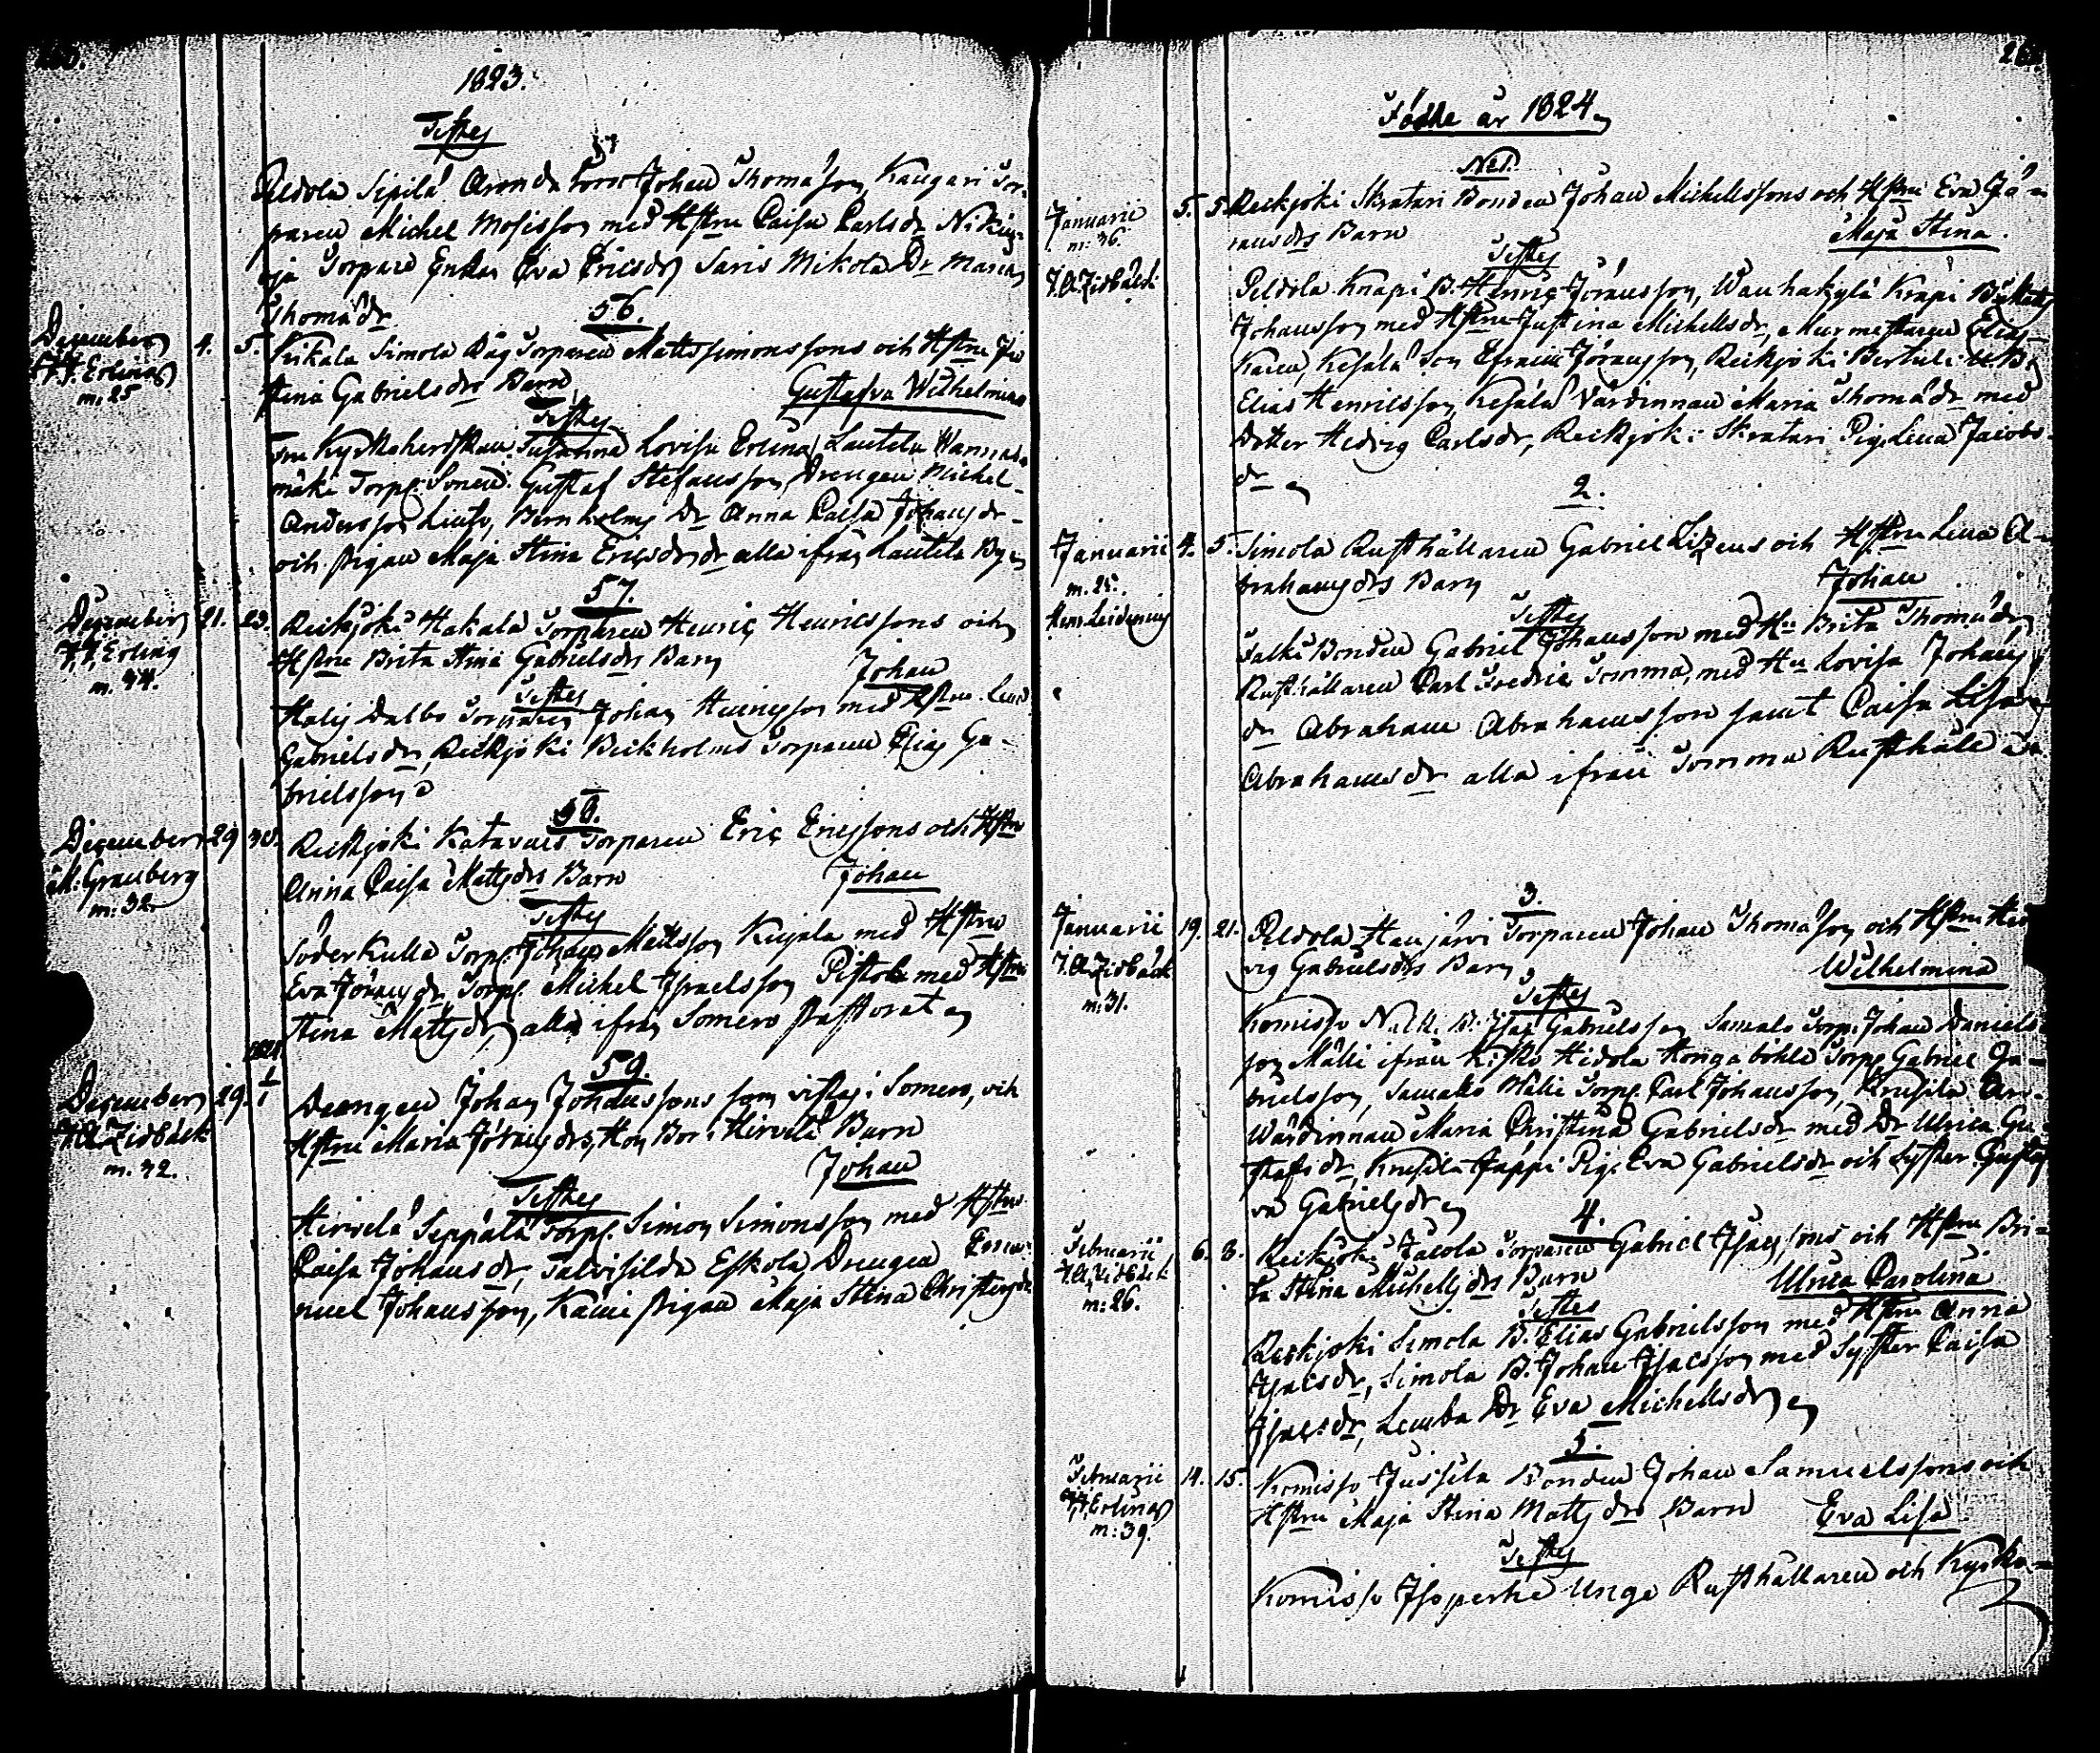 1823.
Testes
Peldola Sipilä Johan Thomasson, Kangari Tor-
paren Michel Mosisson med Hstru Caisa Carlsdr
Torpare Enkan Eva Ericsdr Saris Mikola Dr Maria
Thomædr
56.
December 4. 5. Kiikala Simola Torparen Matts Simonssons och Hstru
stina Gabrielsdrs Barn Gustafva Wilhelmina
Erling
m: 25
Testes
Susanna Lovisa Erling, Lautela Wannas-
mäki Torp: Sonen Gustaf Stefansson Drengen Michel
Andersson Dr Anna Caisa Johansdr
och pigan Maja Stina Ericsdr alla ifrån Lautela By
57.
December 21. 23. Reckijoki Hakala Torparen Henric Henricssons och
Erling
m. 34.
Hstru Brita Stina Gabrielsdrs Barn Johan
Testes
Dalbo Torparen Johan Henricsson med Hstru Lena
Gabrielsdr, Reckijoki Beckholms Torparen Elias Ga-
brielsson
58.
December 29 30. Reckijoki Torparen Eric Ericssons och Hstru
M: Granberg
m: 32.
Anna Caisa Mattsdrs Barn Johan
Testes
Söderkulla Torp: Johan Mattsson Kujala med Hstru
Eva Göransdr, Torp: Michel Israelsson Pistola med Hstru
Stina Mattsdr, alla ifrån Somero Pastorat
1824.
59.
December 29. 1/1 Drengen Johan Johanssons som vistas i Somero, och
J.A. Zidbäck
m. 32.
Hstru Maria Göransdrs, Hon Bor i Hirvelä Barn
Johan
Testes
Hirvelä Seppälä Torp: Simon Simonsson med Hstru
Caisa Johansdr, Talvisilda Eskola Drengen Ema-
nuel Johansson, pigan Maja Stina Christersdr
Födde år 1824
No 1.
Januarii 5. 5. Reckijoki Skratari Bonden Johan Michelssons och Hstru Eva Gö-
m: 36.
J.A. Zidbäck
ransdrs Barn Maja Stina.
Testes
Peldola Knapi B. Henric Göransson, Wauhakylä Knapi B. Matts
Johansson med Hstru Justina Michelsdr, Murmestaren Elias
Kesälä Son Efraim Göransson, Reckijoki Bertuli B.
Elias Henricsson Kesälä Värdinnan Maria Thomædr med
Dotter Hedvig Carlsdr, Reckijoki Skratari Pig: Lena Jacobs
dr
2.
Januarii 4. 5. Simola Rusthållaren Gabriel och Hstru Lena A-
m. 25.
Henr: Leidenius
brahamsdrs Barn Johan
Testes
Salki Bonden Gabriel Johansson med Hu Brita Thomædr
Rusthållaren Carl Fredric Somma, med Hu Lovisa Johans
dr Abraham Abrahamsson samt Caisa Lisa
Abrahamsdr alla ifrån Somma Rusthåll
3.
Januarii 19. 21. Peldola Haujärvi Torparen Johan Thomasson och Hstru Hed
J.A. Zidbäck
m: 31.
vig Gabrielsdrs Barn Wilhelmina
Testes
Komisso B. Isac Gabrielsson Samalo Torp: Johan Daniels
son Mälli ifrån Kisko Hidola Hongaböhle Torp: Gabriel Ga-
brielsson, Samalo Mälli Torp: Carl Johansson, Knusila
Värdinnan Maria Christina Gabrielsdr med Dr Ulrica Gu
stafsdr, Knusila Jäppi Pig: Eva Gabrielsdr och Syster Gusta
va Gabrielsdr
4.
Februarii 6. 8. Reckijoki Torparen Gabriel Isacssons och Hstru Bri-
J.A. Zidbäck
m: 26.
ta Stina Michelsdrs Barn Ulrica Carolina
Testes
Reckijoki Simola B. Elias Gabrielsson med Hstru Anna
Isacsdr, Simola B. Johan Isacsson med Syster Caisa
Isacsdr, Lemba Dr Eva Michelsdr
5.
Februarii 14. 15. Komisso Jussila Bonden Johan Samuelssons och
Erling
m: 39.
Hstru Maja Stina Mattsdrs Barn Eva Lisa
Testes
Komisso Isoperhe Unga Rusthållaren och Kyrko-